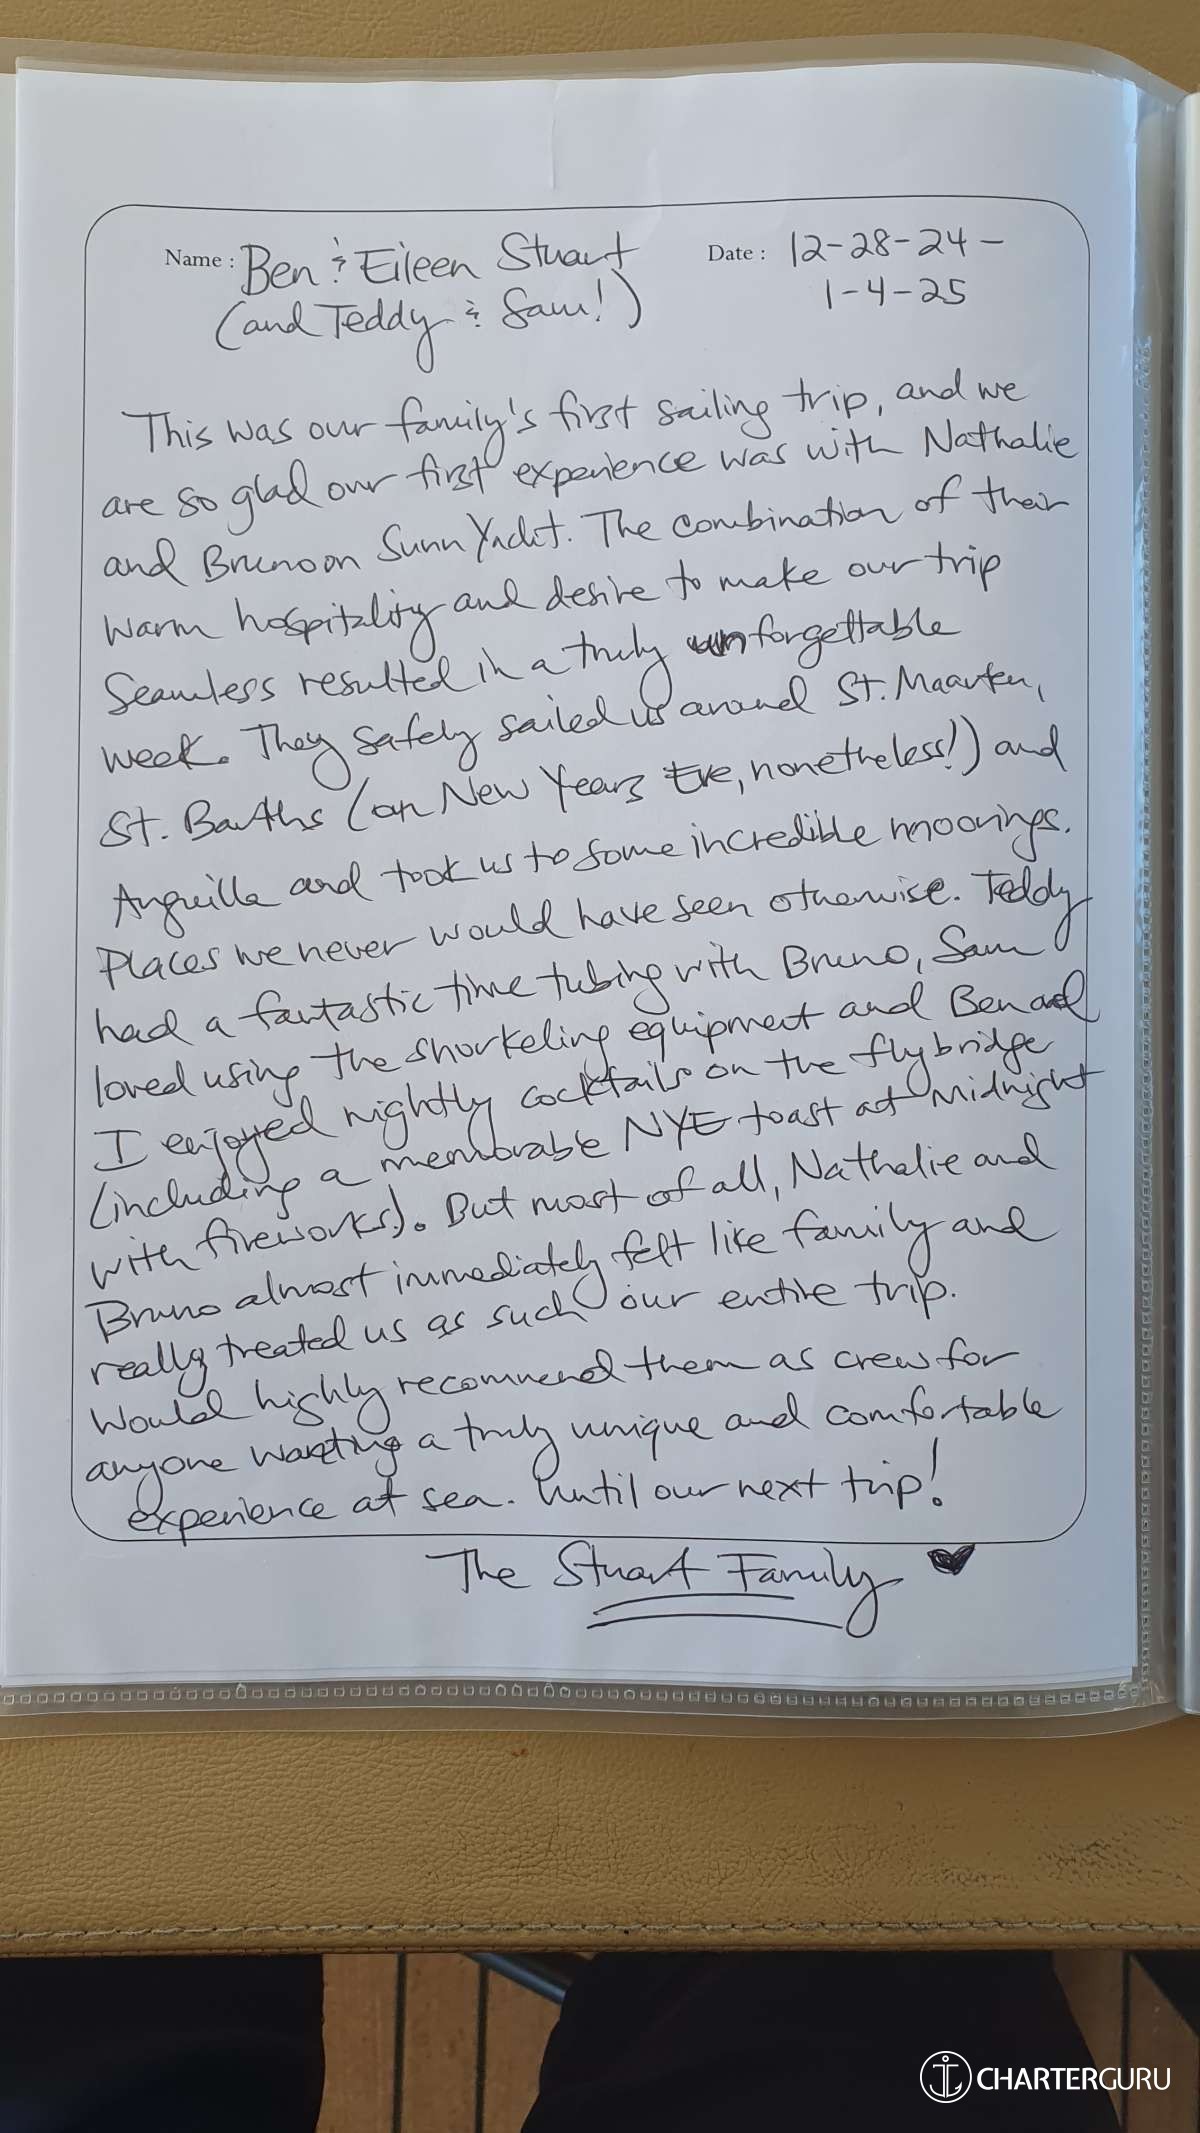 Name : Ben & Eileen Stuart
(and Teddy & Sam!)
Date : 12-28-24 -
1-4-25
This was our family's first sailing trip, and we
are so glad our first experience was with Nathalie
and Bruno on Sunn Yacht. The combination of their
warm hospitality and desire to make our trip
seamless resulted in a truly unforgettable
week. They safely sailed us around St. Maarten,
St. Barths (on New Years Eve, nonetheless!) and
Anguilla and took us to some incredible moorings.
Places we never would have seen otherwise. Teddy
had a fantastic time tubing with Bruno, Sam
loved using the snorkeling equipment and Ben and
I enjoyed nightly cocktails on the flybridge
(including a memorable NYE toast at midnight
with fireworks). But most of all, Nathalie and
Bruno almost immediately felt like family and
really treated us as such our entire trip.
Would highly recommend them as crew for
anyone wanting a truly unique and comfortable
experience at sea. Until our next trip!
The Stuart Family ♥
CHARTERGURU